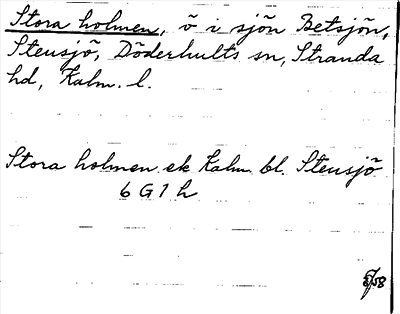 Stora holmen, ö i sjön Betsjön,
Stensjö, Döderhults sn, Stranda
hd, Kalm. l.
Stora holmen ek Kalm. bl. Stensjö
6 G 1 h